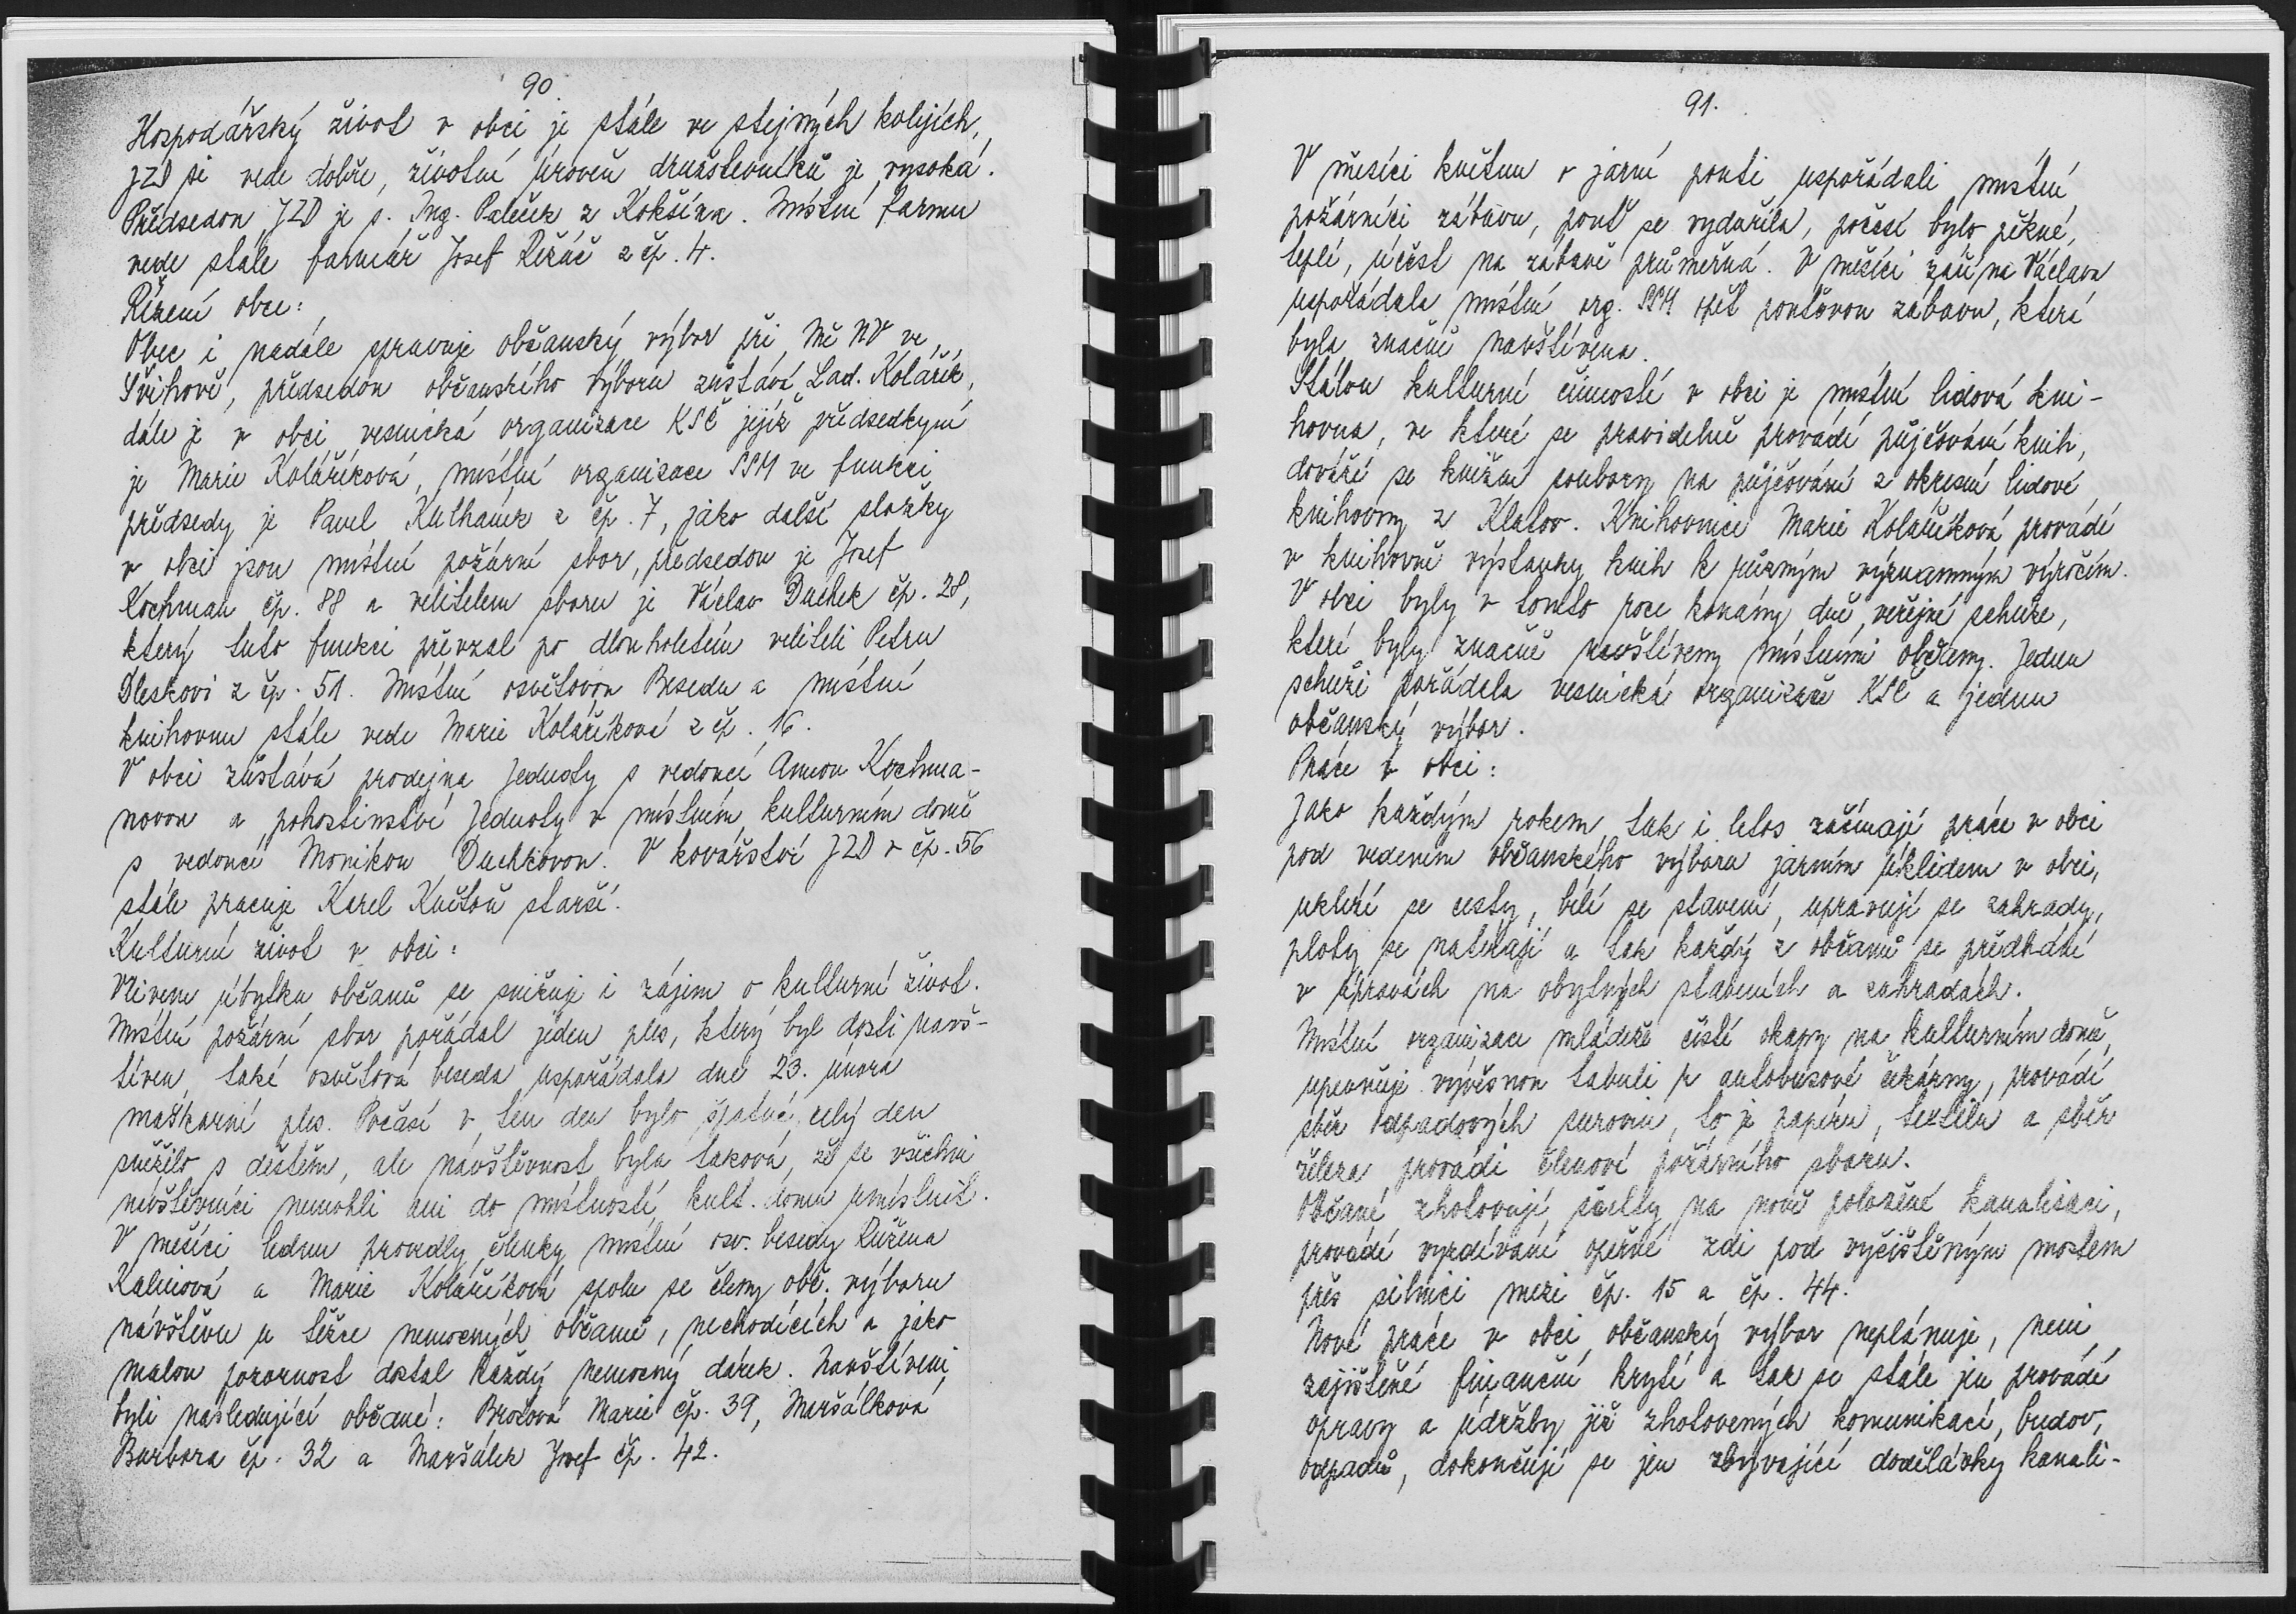 90.
Hospodářský život v obci je stále ve stejných kolejích,
JZD si vede dobře, životní úroveň družstevníků je vysoká.
Předsedou JZD je s. Ing. Paleček z Kokšína. Místní farmu
vede stále farmář Josef Řežáč z čp. 4.
Řízení obce:
Obec i nadále spravuje občanský výbor při Mě NV ve
Švihově, předsedou občanského výboru zůstává Lad. Kolářík,
dále je v obci vesnická organizace KSČ jejíž předsedkyní
je Marie Koláříková, místní organizace SSM ve funkci
předsedy je Pavel Kulhánek z čp. 7, jako další složky
v obci jsou místní požární sbor, předsedou je Josef
Kochman čp. 88 a velitelem sboru je Václav Duchek čp. 28,
který tuto funkci převzal po dlouholetém veliteli Petru
Dleskovi z čp. 51. Místní osvětovou Besedu a místní
knihovnu stále vede Marie Koláříková z čp. 16.
V obci zůstává prodejna Jednoty s vedoucí Annou Kochma-
novou a pohostinství Jednoty v místním kulturním domě
s vedoucí Monikou Duchkovou. V kovářství JZD v čp. 56
stále pracuje Karel Květoň starší.
Kulturní život v obci:
Vlivem úbytku občanů se snižuje i zájem o kulturní život.
Místní požární sbor pořádal jeden ples, který byl dosti navš-
tíven, také osvětová beseda uspořádala dne 23. února
maškarní ples. Počasí v ten den bylo špatné, celý den
sněžilo s deštěm, ale návštěvnost byla taková, že se všichni
návštěvníci nemohli ani do místností kult. domu umístnit.
V měsíci lednu provedly členky místní osv. besedy Růžena
Kalinová a Marie Koláříková spolu se členy obč. výboru
návštěvu u těžce nemocných občanů, nechodících a jako
malou pozornost dostal každý nemocný dárek. Navštíveni
byli následující občané: Brožová Marie čp. 39, Maršálková
Barbora čp. 32 a Maršálek Josef čp. 42.
91.
V měsíci květnu v jarní pouti uspořádali místní
požárníci zábavu, pouť se vydařila, počasí bylo pěkné,
teplé, účast na zábavě průměrná. V měsíci září na Václava
uspořádala místní org. SSM opět pouťovou zábavu, která
byla značně navštívena.
Stálou kulturní činností v obci je místní lidová kni-
hovna, ve které se pravidelně provádí půjčování knih,
dováží se knižní soubory na půjčování z okresní lidové
knihovny z Klatov. Knihovnice Marie Koláříková provádí
v knihovně výstavky knih k různým významným výročím.
V obci byly v tomto roce konány dvě veřejné schůze,
které byly značně navštíveny místními občany. Jednu
schůzi pořádala vesnická organizace KSČ a jednu
občanský výbor.
Práce v obci:
Jako každým rokem tak i letos začínají práce v obci
pod vedením občanského výboru jarním úklidem v obci,
uklízí se cesty, bílí se stavení, upravují se zahrady,
ploty se natírají a tak každý z občanů se předhání
v úpravách na obytných staveních a zahradách.
Místní organizace mládeže čistí okapy na kulturním domě,
upevňuje vývěsnou tabuli u autobusové čekárny, provádí
sběr odpadových surovin, to je papíru, textilu a sběr
železa provádí členové požárního sboru.
Občané zhotovují šachty na nově položené kanalisaci,
provádí vyzdívání opěrné zdi pod vyčištěným mostem
přes silnici mezi čp. 15 a čp. 44.
Nové práce v obci občanský výbor neplánuje, není
zajištěné finanční krytí a tak se stále jen provádí
opravy a údržby již zhotovených komunikací, budov,
odpadů, dokončují se jen zbývající dodělávky kanali-